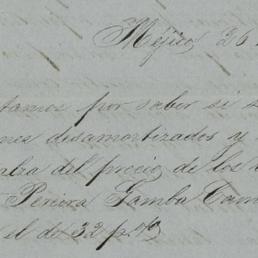 Méjico, 26
tamos por saber si s
nes desamortizados y
del precio de los
Pereira Gamba Cam
el de 32 p.%